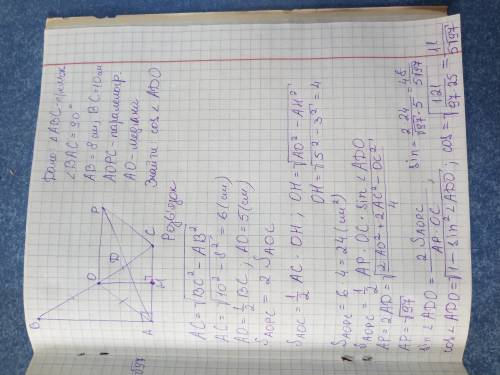 Дано: △ABC-прямок
∠BAC = 90°
AB = 8 см, BC = 10 см
AOPC - паралелогр.
AO - медіана
Знайти cos∠ADO
B
O
P
D
A
H
C
Розв'язок
AC = √BC² - AB²
AC = √10² - 8² = 6 (см)
AO = 1/2 BC; AO = 5 (см)
S AOPC = 2 S AOC
S AOC = 1/2 AC · OH; OH = √AO² - AH²
OH = √5² - 3² = 4
S AOPC = 6·4 = 24 (см²)
S AOPC = 1/2 AP · OC · sin∠ADO
AP = 2AD = √(2AO² + 2AC² - OC²)/4
AP = √97
sin∠ADO = 2S AOPC / AP·OC; sin = 2·24/√97·5 = 48/5√97
cos∠ADO = √1 - sin²∠ADO; cos = √121/97·25 = 11/5√97
√97